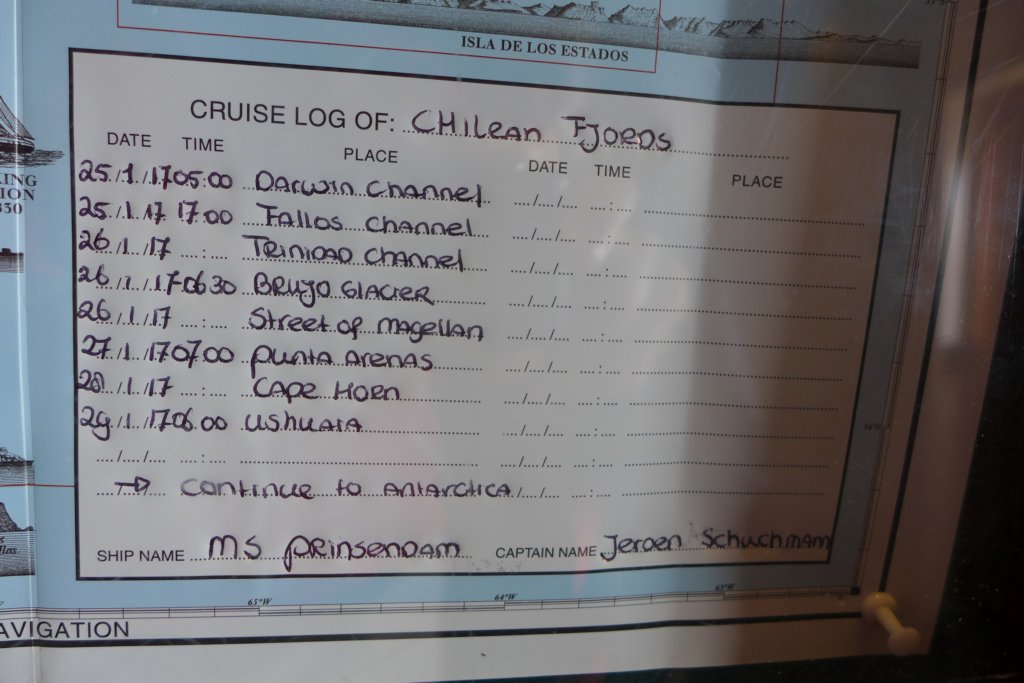 ISLA DE LOS ESTADOS
CRUISE LOG OF: CHILEAN FJORDS
DATE TIME PLACE DATE TIME PLACE
25/1/17 05:00 DARWIN CHANNEL
25/1/17 17:00 FALLOS CHANNEL
26/1/17 TRINIDAD CHANNEL
26/1/17 06 30 BRUJO GLACIER
26/1/17 Street of Magellan
27/1/17 07:00 PUNTA ARENAS
28/1/17 CAPE HORN
29/1/17 06:00 USHUAIA
→ CONTINUE TO ANTARCTICA
SHIP NAME MS PRINSENDAM CAPTAIN NAME Jeroen Schuchmann
65°W 64°W 63°W
AVIGATION